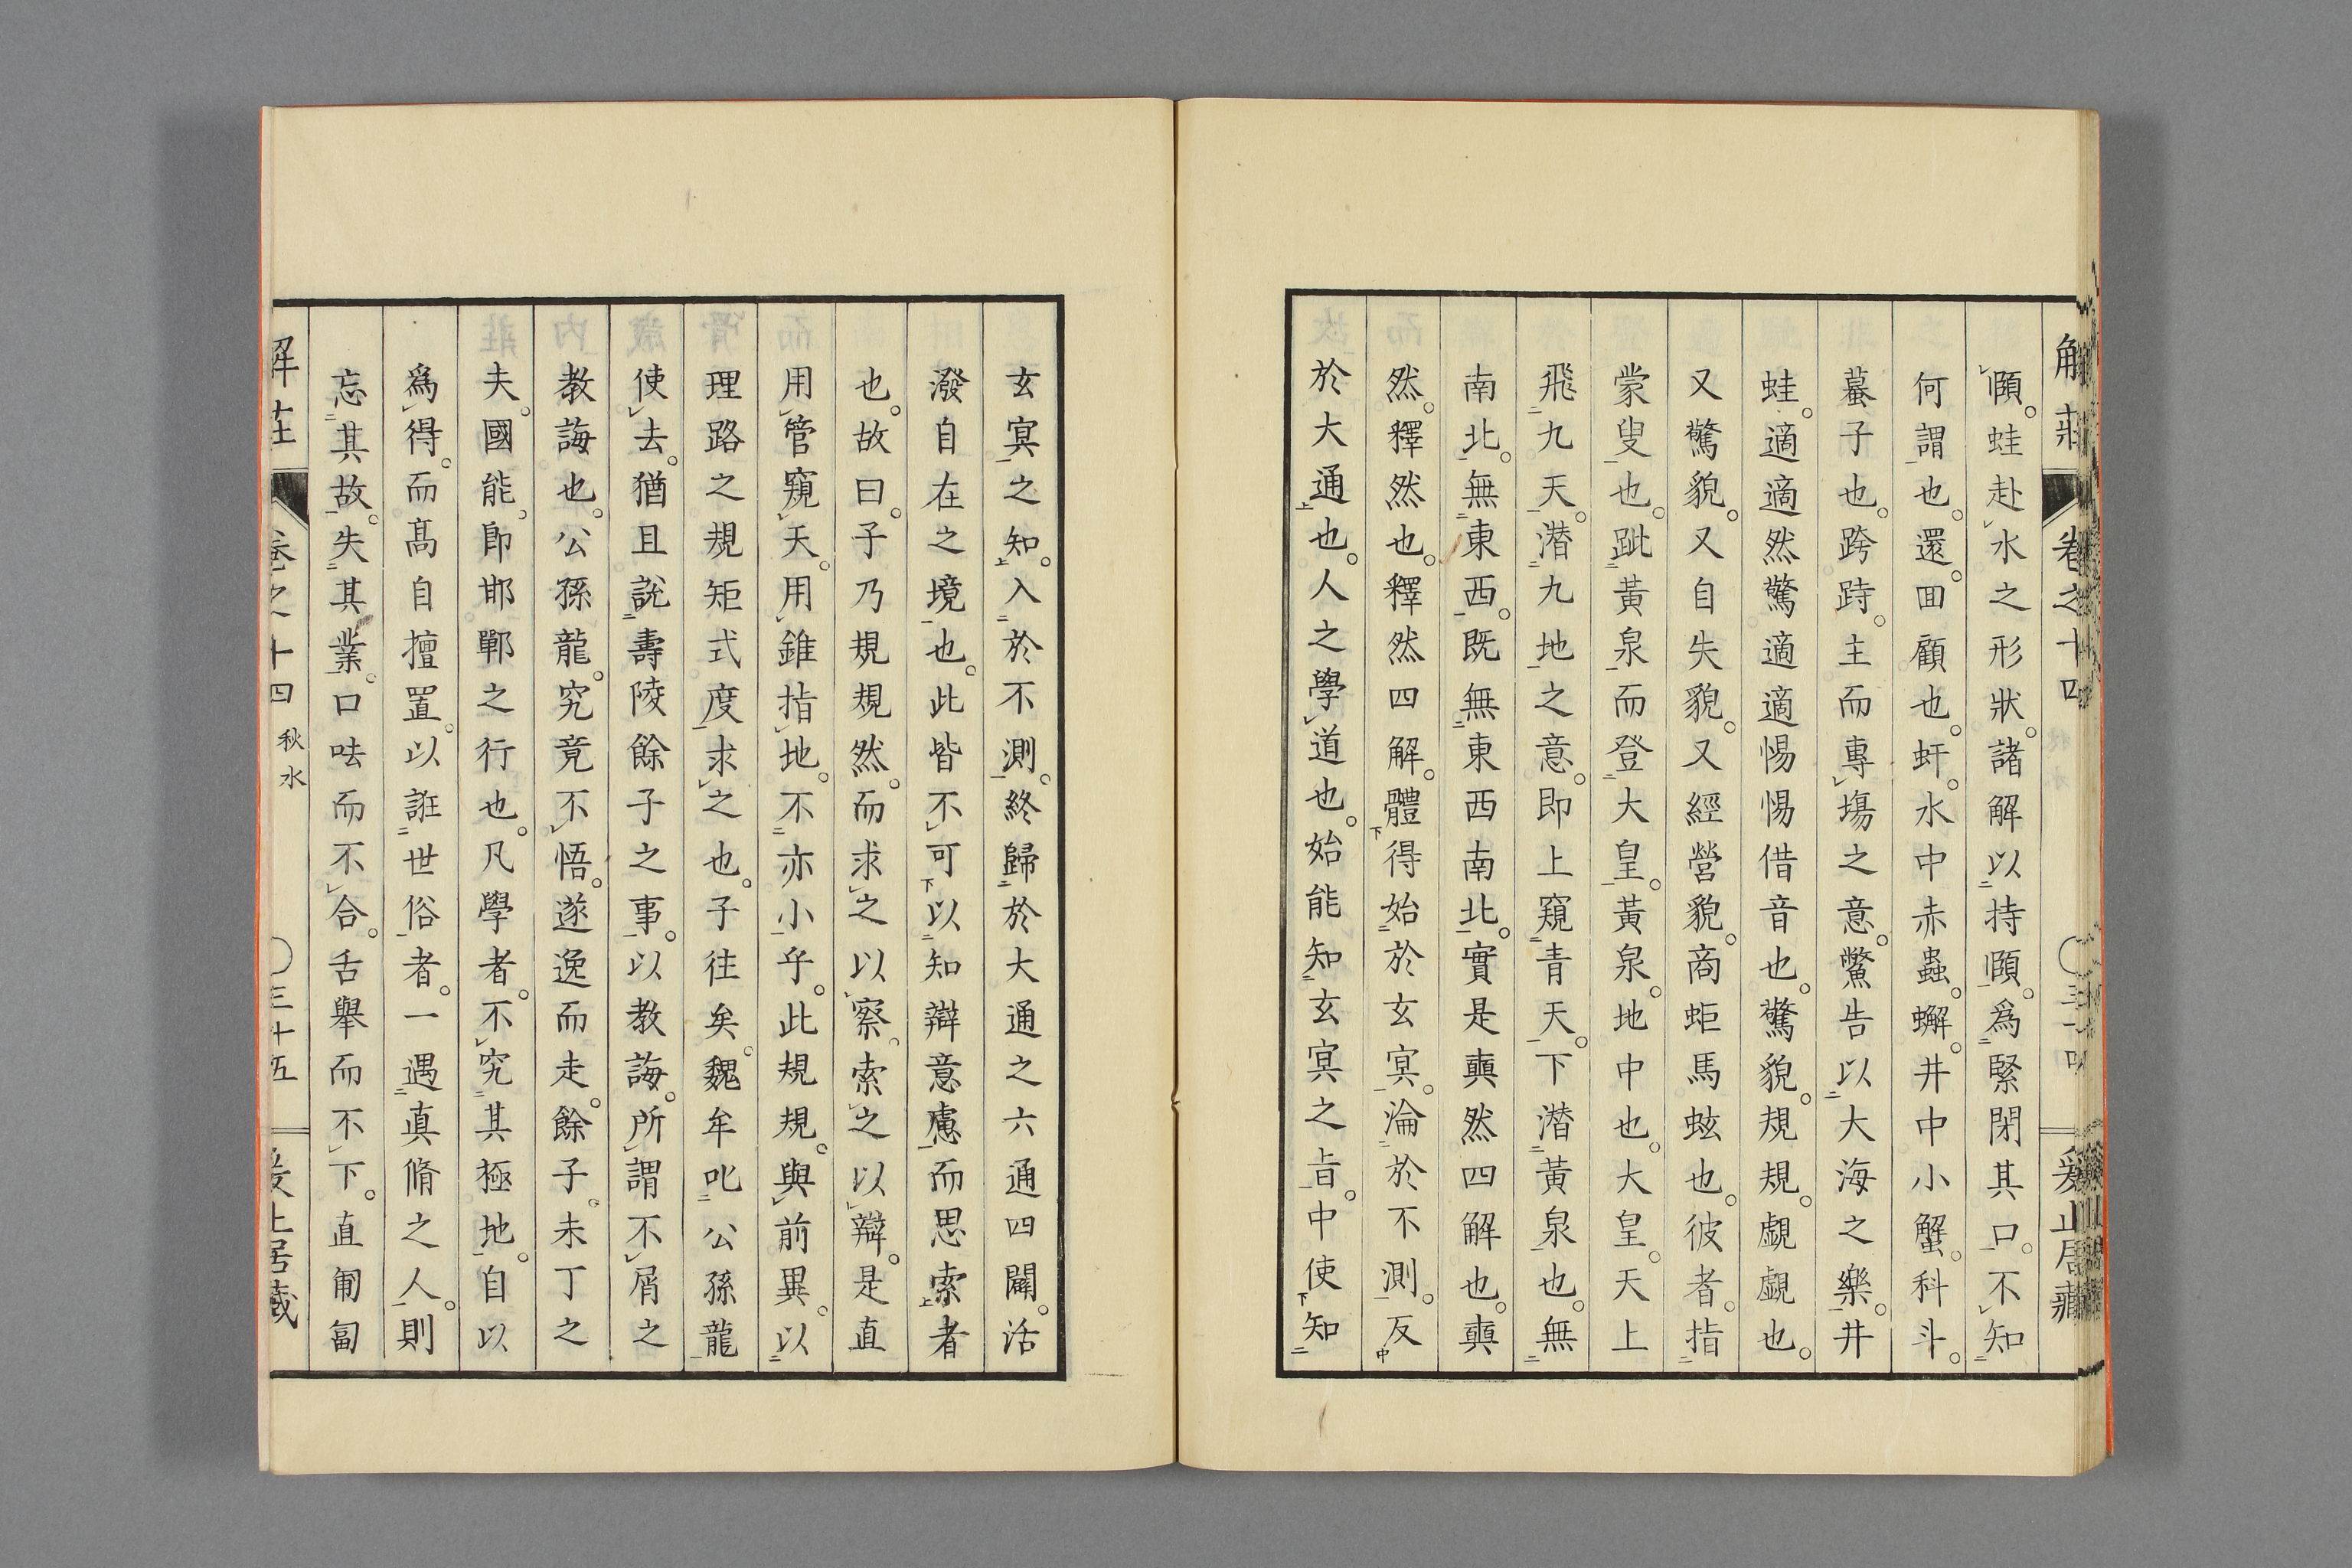 解莊 卷之十四 三十四 爰止居藏
頤。蛙赴水之形狀。諸解以持頤。爲緊閉其口。不知
何謂也。還。囬顧也。虷。水中赤蟲。蠏。井中小蟹。科斗。
蟇子也。跨跱。主而專塲之意。鱉告以大海之樂。井
蛙。適適然驚適適惕惕借音也。驚貌。規規。覷覷也。
又驚貌。又自失貌。又經營貌。商蚷馬蚿也。彼者。指
蒙叟也。跐黃泉而登大皇。黃泉。地中也。大皇。天上
飛九天。潜九地之意。即上窺青天。下潜黃泉也。無
南北。無東西。既無東西南北。實是奭然四解也。奭
然。釋然也。釋然四解。體得始於玄冥。淪於不測。反
於大通也。人之學道也。始能知玄冥之旨。中使知
玄冥之知。入於不測。終歸於大通之六通四闢。活
潑自在之境也。此皆不可以知辯意慮而思索者
也。故曰。子乃規規然。而求之以察。索之以辯。是直
用管窺天。用錐指地。不亦小乎。此規規。與前異。以
理路之規矩式度求之也。子往矣。魏牟叱公孫龍
使去。猶且說壽陵餘子之事。以教誨。所謂不屑之
教誨也。公孫龍。究竟不悟。遂逸而走。餘子。未丁之
夫。國能。卽邯鄲之行也。凡學者。不究其極地。自以
爲得。而高自擅置。以誑世俗者。一遇真脩之人。則
忘其故。失其業。口呿而不合。舌舉而不下。直匍匐
解莊 卷之十四 秋水 三十五 爰止居藏